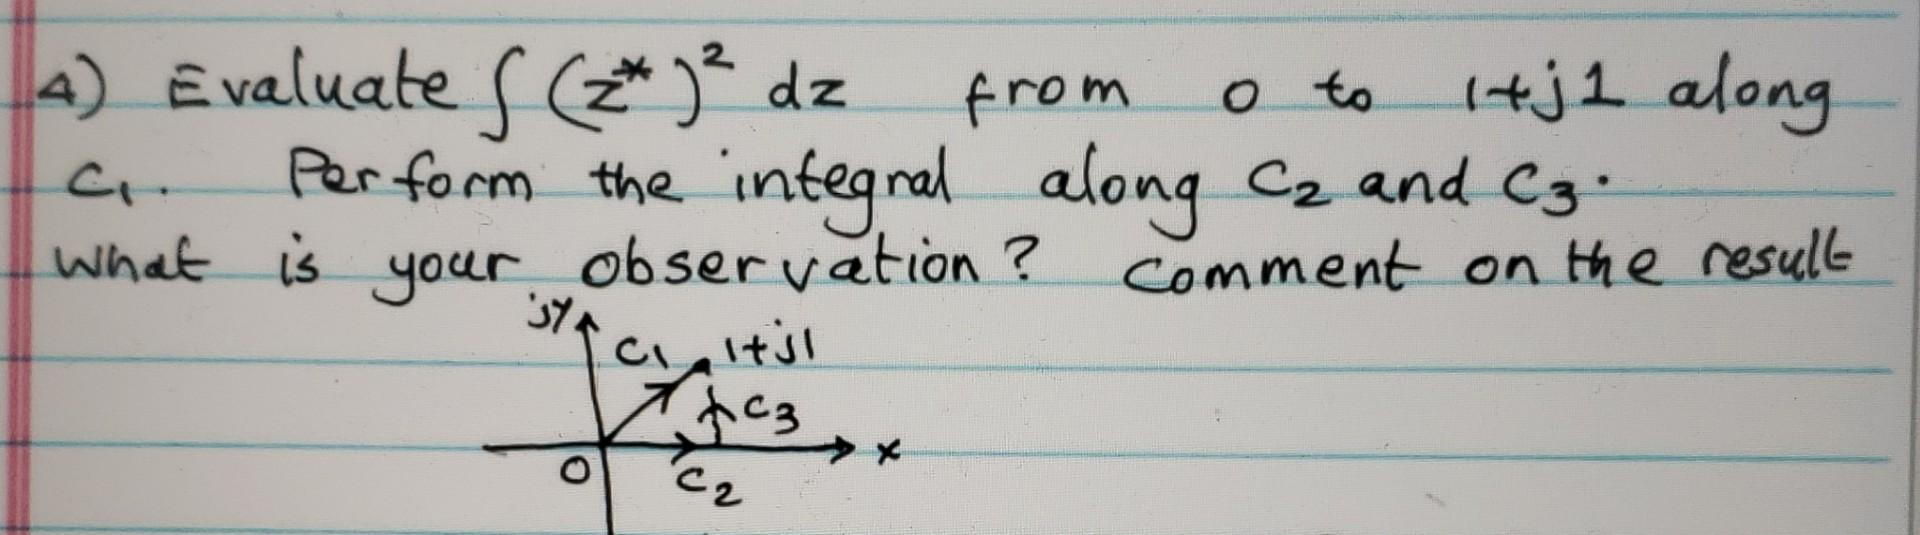 4) Evaluate ∫ (z*)² dz from 0 to 1+j1 along
C₁. Perform the integral along C₂ and C₃.
What is your observation? Comment on the result
jy
C₁ 1+j1
C₃
x
0
C₂